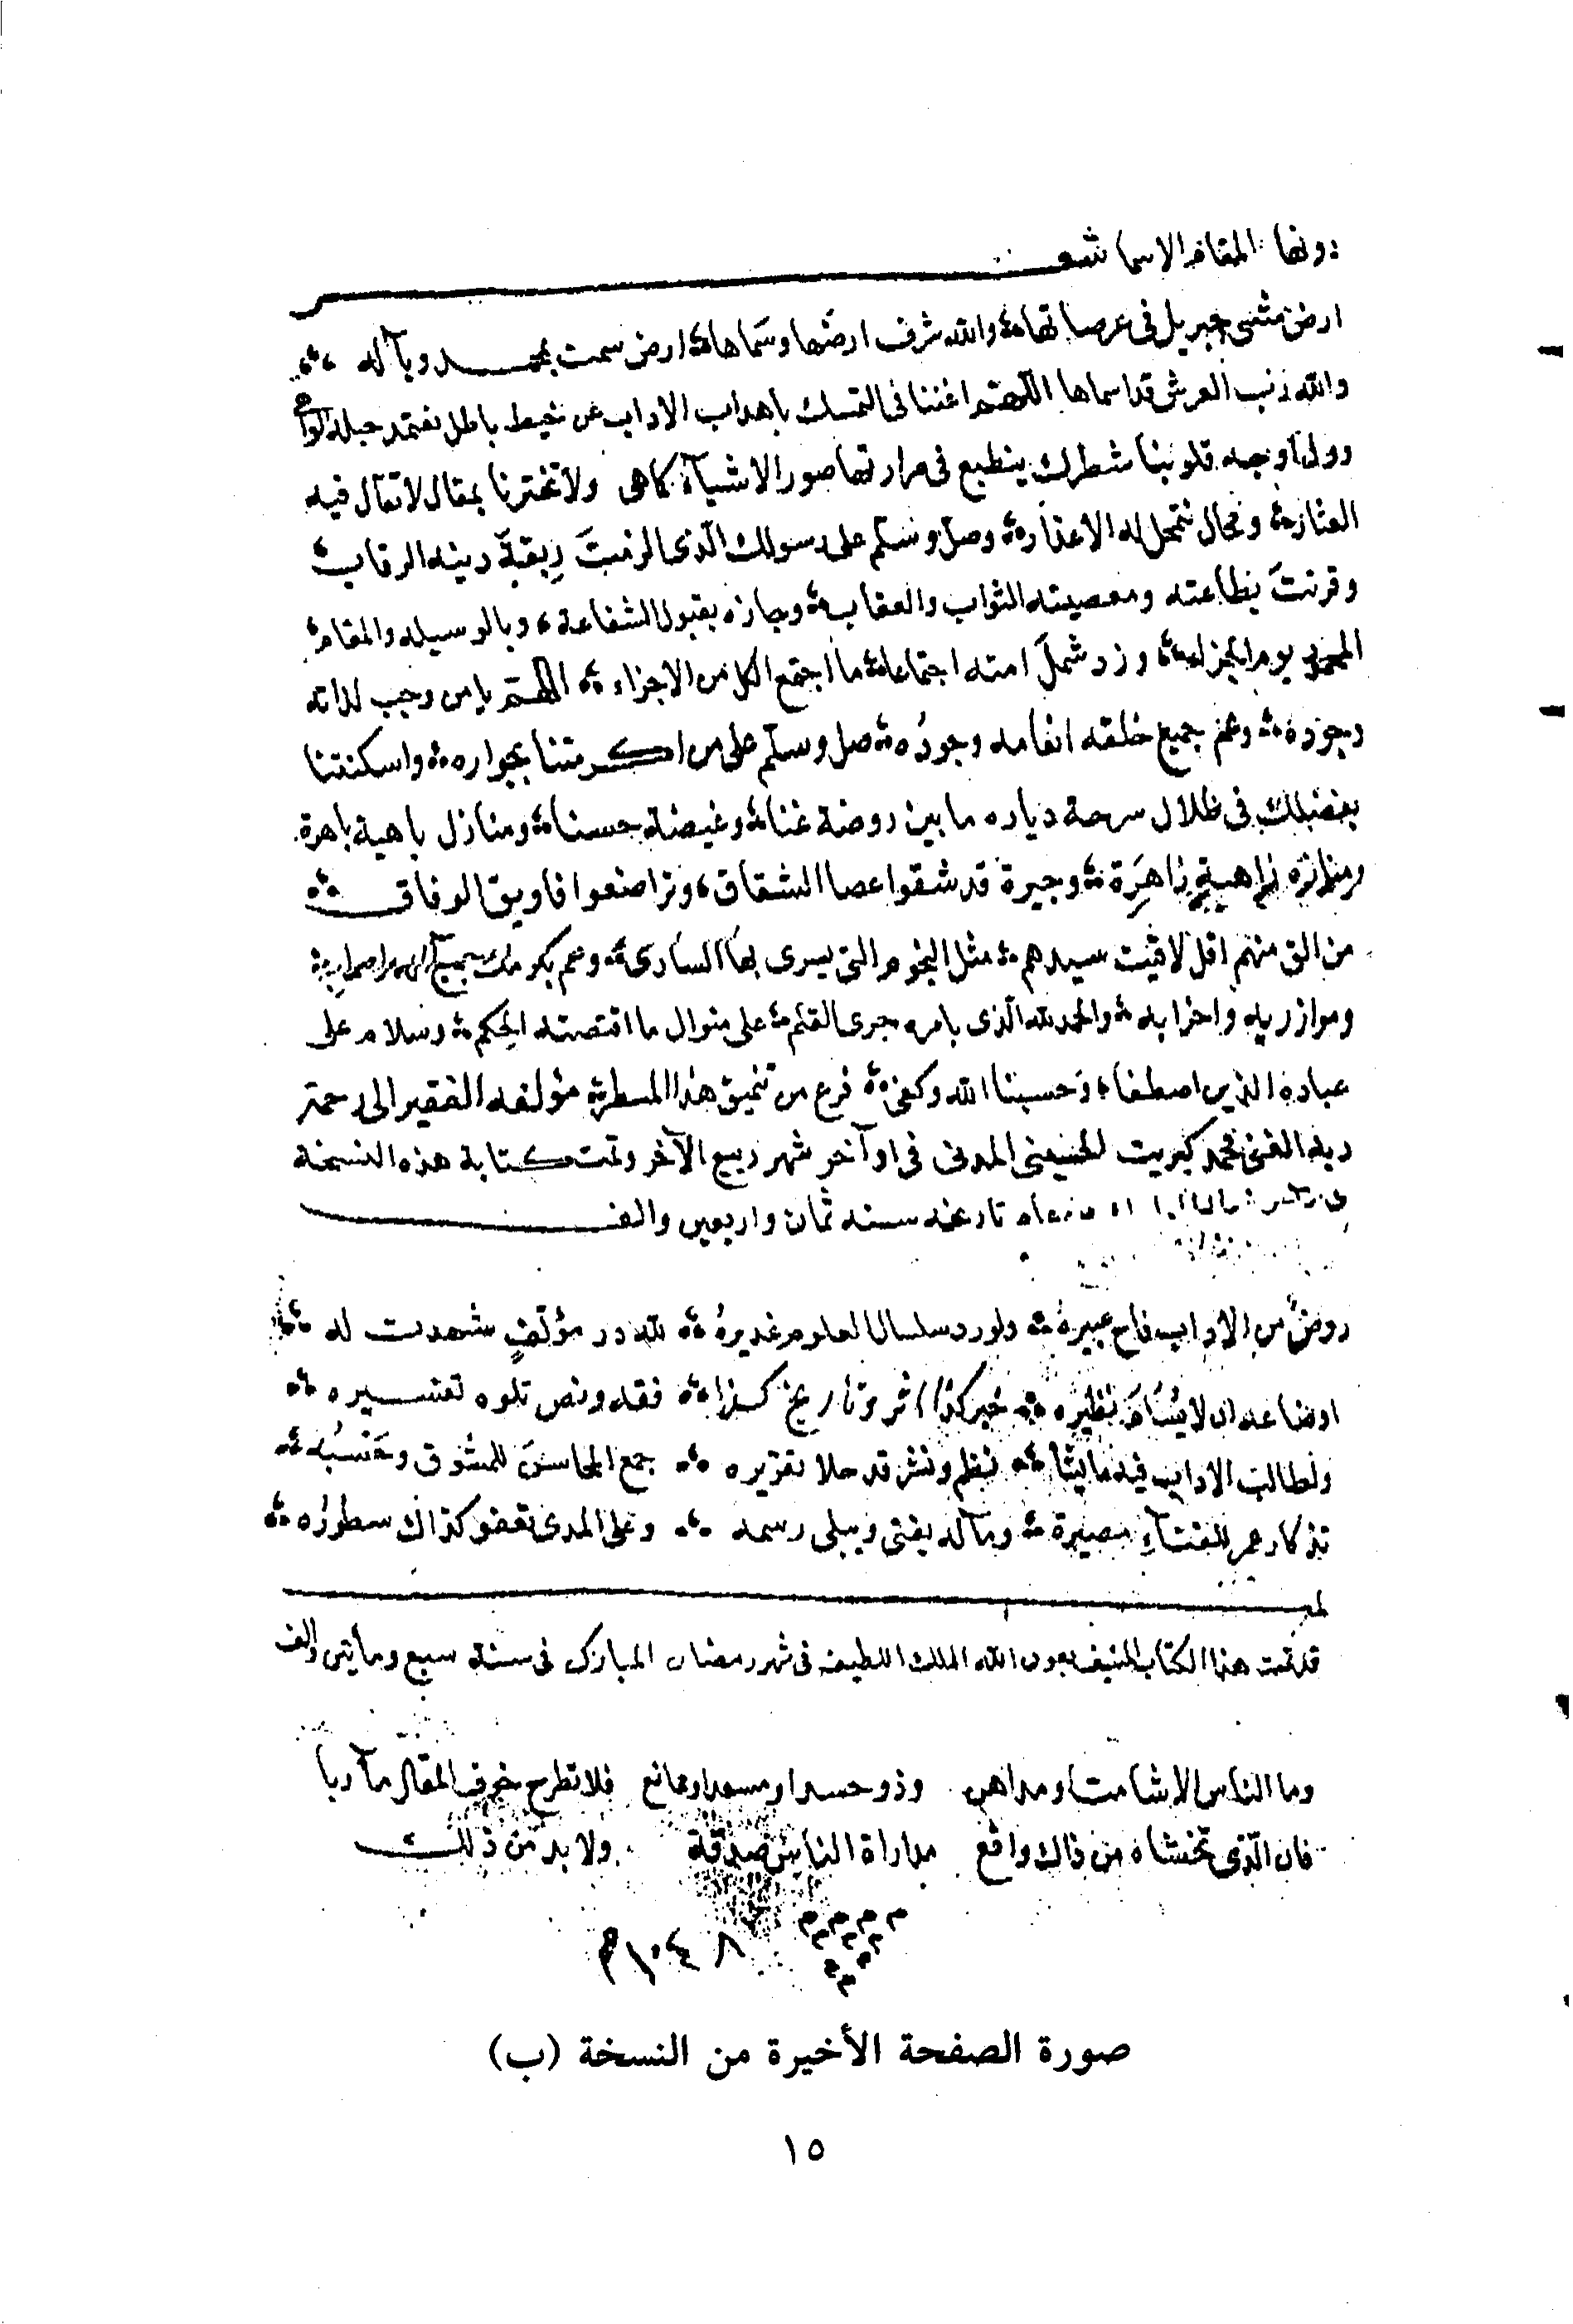 دونها المقام الاسما شعر
ارض مشى جبريل فى عرصاتها والله شرف ارضها وسماها ارض سمت بمحمد وبآله
والله رب العرش قد اسماها اللهم اغننا فى التمسك باهداب الاداب عن خيط باطل نعتمد حباله
وول اوجه قلوبنا شطرك ينطبع فى صور الاشيآء كما هى ولا تخترنا بمقال لا تقال فيه
العثار وفحال نتمحل له الاعذار وصل وسلم على رسولك الذى الزمت ربقة دينه الرقاب
وقرنت بطاعته ومعصيته الثواب والعقاب وجازه بقبول الشفاعة وبالوسيله والمقام
المحمود يوم الجزاء وزد شمل امته اجتماعا ما اجتمع الكل من الاجزاء اللهم يا من وجب لذاته
وجوده وعم جميع خلقه انعامه وجوده صل وسلم على من اكرمتنا بجواره واسكنتنا
بفضلك فى ظلال سرحة دياره ما بين روضة غنا وغيضة حسنا ومنازل باهية باهرة
ومنازه زاهية زاهرة وجيرة قد شقوا عصا الشقاق وتراضعوا افاويق الوفاق
من تلق منهم اقل لاقيت سيدهم مثل النجوم التى يسرى بها السارى وعم بكرمك جميع
وموازريه واحزابه والحمد لله الذى بامره جرى القلم على منوال ما اقتضته الحكم وسلام على
عباده الذين اصطفا وحسبنا الله وكفى فرغ من تنميق هذا المسطر مؤلفه الفقير الى رحمة
ربه الغنى محمد كبريت الحسينى المدنى فى اوآخر شهر ربيع الآخر وتمت كتابة هذه النسخة
تاريخه سنه ثمان واربعين والف
روض من الاداب فاح عبيره ولورد سلسال العلوم غديره لله در مؤلف شهدت له
اوضاعه ان لا يسام نظيره خبر كذا اثر وتاريخ كذا فقه ونص تلوه تفسيره
ولطالب الاداب فيه ما يشا نظم ونثر قد حلا تقريره جمع المحاسن للمشوق وحسبه
تذكار عمر للفنآء مصيره ومآله يفنى ويبلى رسمه وعلى المدى تعفو كذاك سطوره
تم
قد تمت هذا الكتاب المنيف بعون الله الملك اللطيف فى شهر رمضان المبارك فى سنة سبع ومأيتى والف
وما الناس الا شامت ومداهن وذو حسد او مسعد او ممانع فلا تطرح خوف المقال مآربا
فان الذى تخشاه من ذاك واقع مداراة الناس صدقة ولا بد من ذلك
م م م م
م م م
م م
م
١٠٤٨ م
صورة الصفحة الأخيرة من النسخة (ب)
١٥